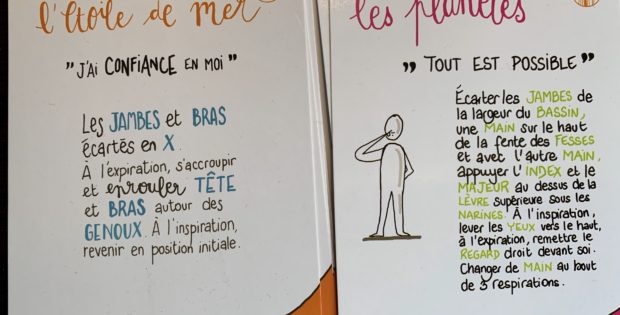 l'étoile de mer
"J'AI CONFIANCE EN MOI"
Les JAMBES et BRAS
écartés en X.
À l'expiration, s'accroupir
et enrouler TÊTE
et BRAS autour des
GENOUX. À l'inspiration,
revenir en position initiale.
les planètes
"TOUT EST POSSIBLE"
Écarter les JAMBES de
la largeur du BASSIN,
une MAIN sur le haut
de la fente des FESSES
et avec l'autre MAIN,
appuyer l'INDEX et le
MAJEUR au dessus de la
LÈVRE supérieure sous les
NARINES. À l'inspiration,
lever les YEUX vers le haut,
à l'expiration, remettre le
REGARD droit devant soi.
Changer de MAIN au bout
de 3 respirations.